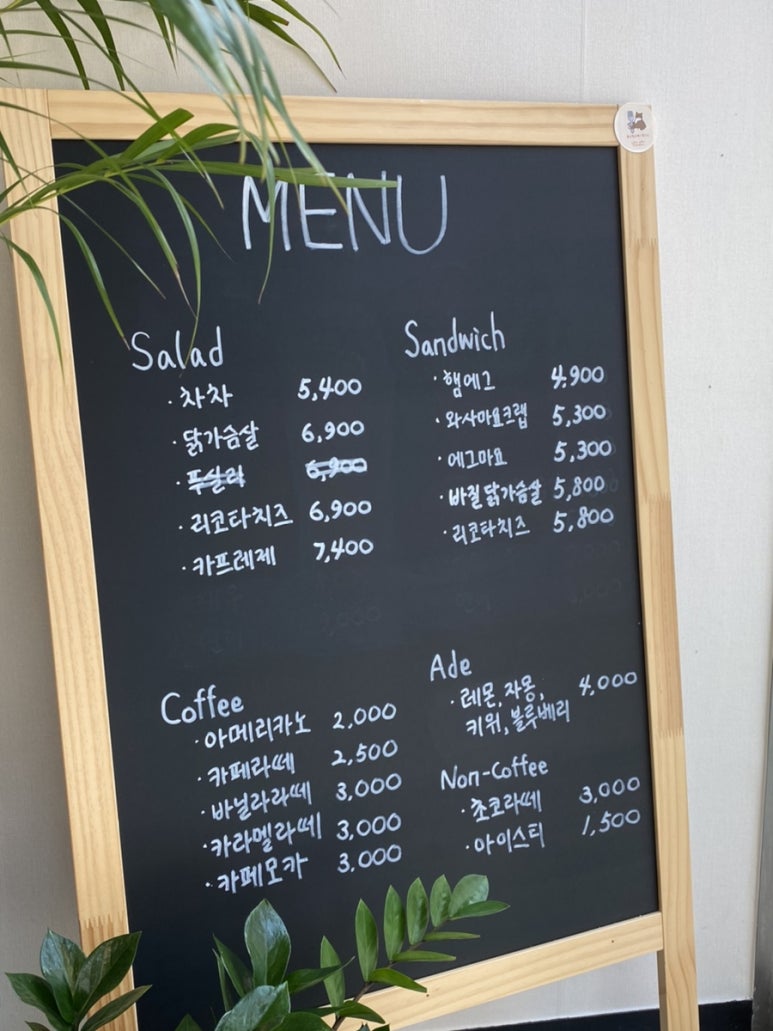 MENU
Salad
· 차차 5,400
· 닭가슴살 6,900
· 푸실리 6,900
· 리코타치즈 6,900
· 카프레제 7,400
Sandwich
· 햄에그 4,900
· 와사마요크랩 5,300
· 에그마요 5,300
· 바질닭가슴살 5,800
· 리코타치즈 5,800
Coffee
· 아메리카노 2,000
· 카페라떼 2,500
· 바닐라라떼 3,000
· 카라멜라떼 3,000
· 카페모카 3,000
Ade
· 레몬, 자몽, 4,000
키위, 블루베리
Non-Coffee
· 초코라떼 3,000
· 아이스티 1,500